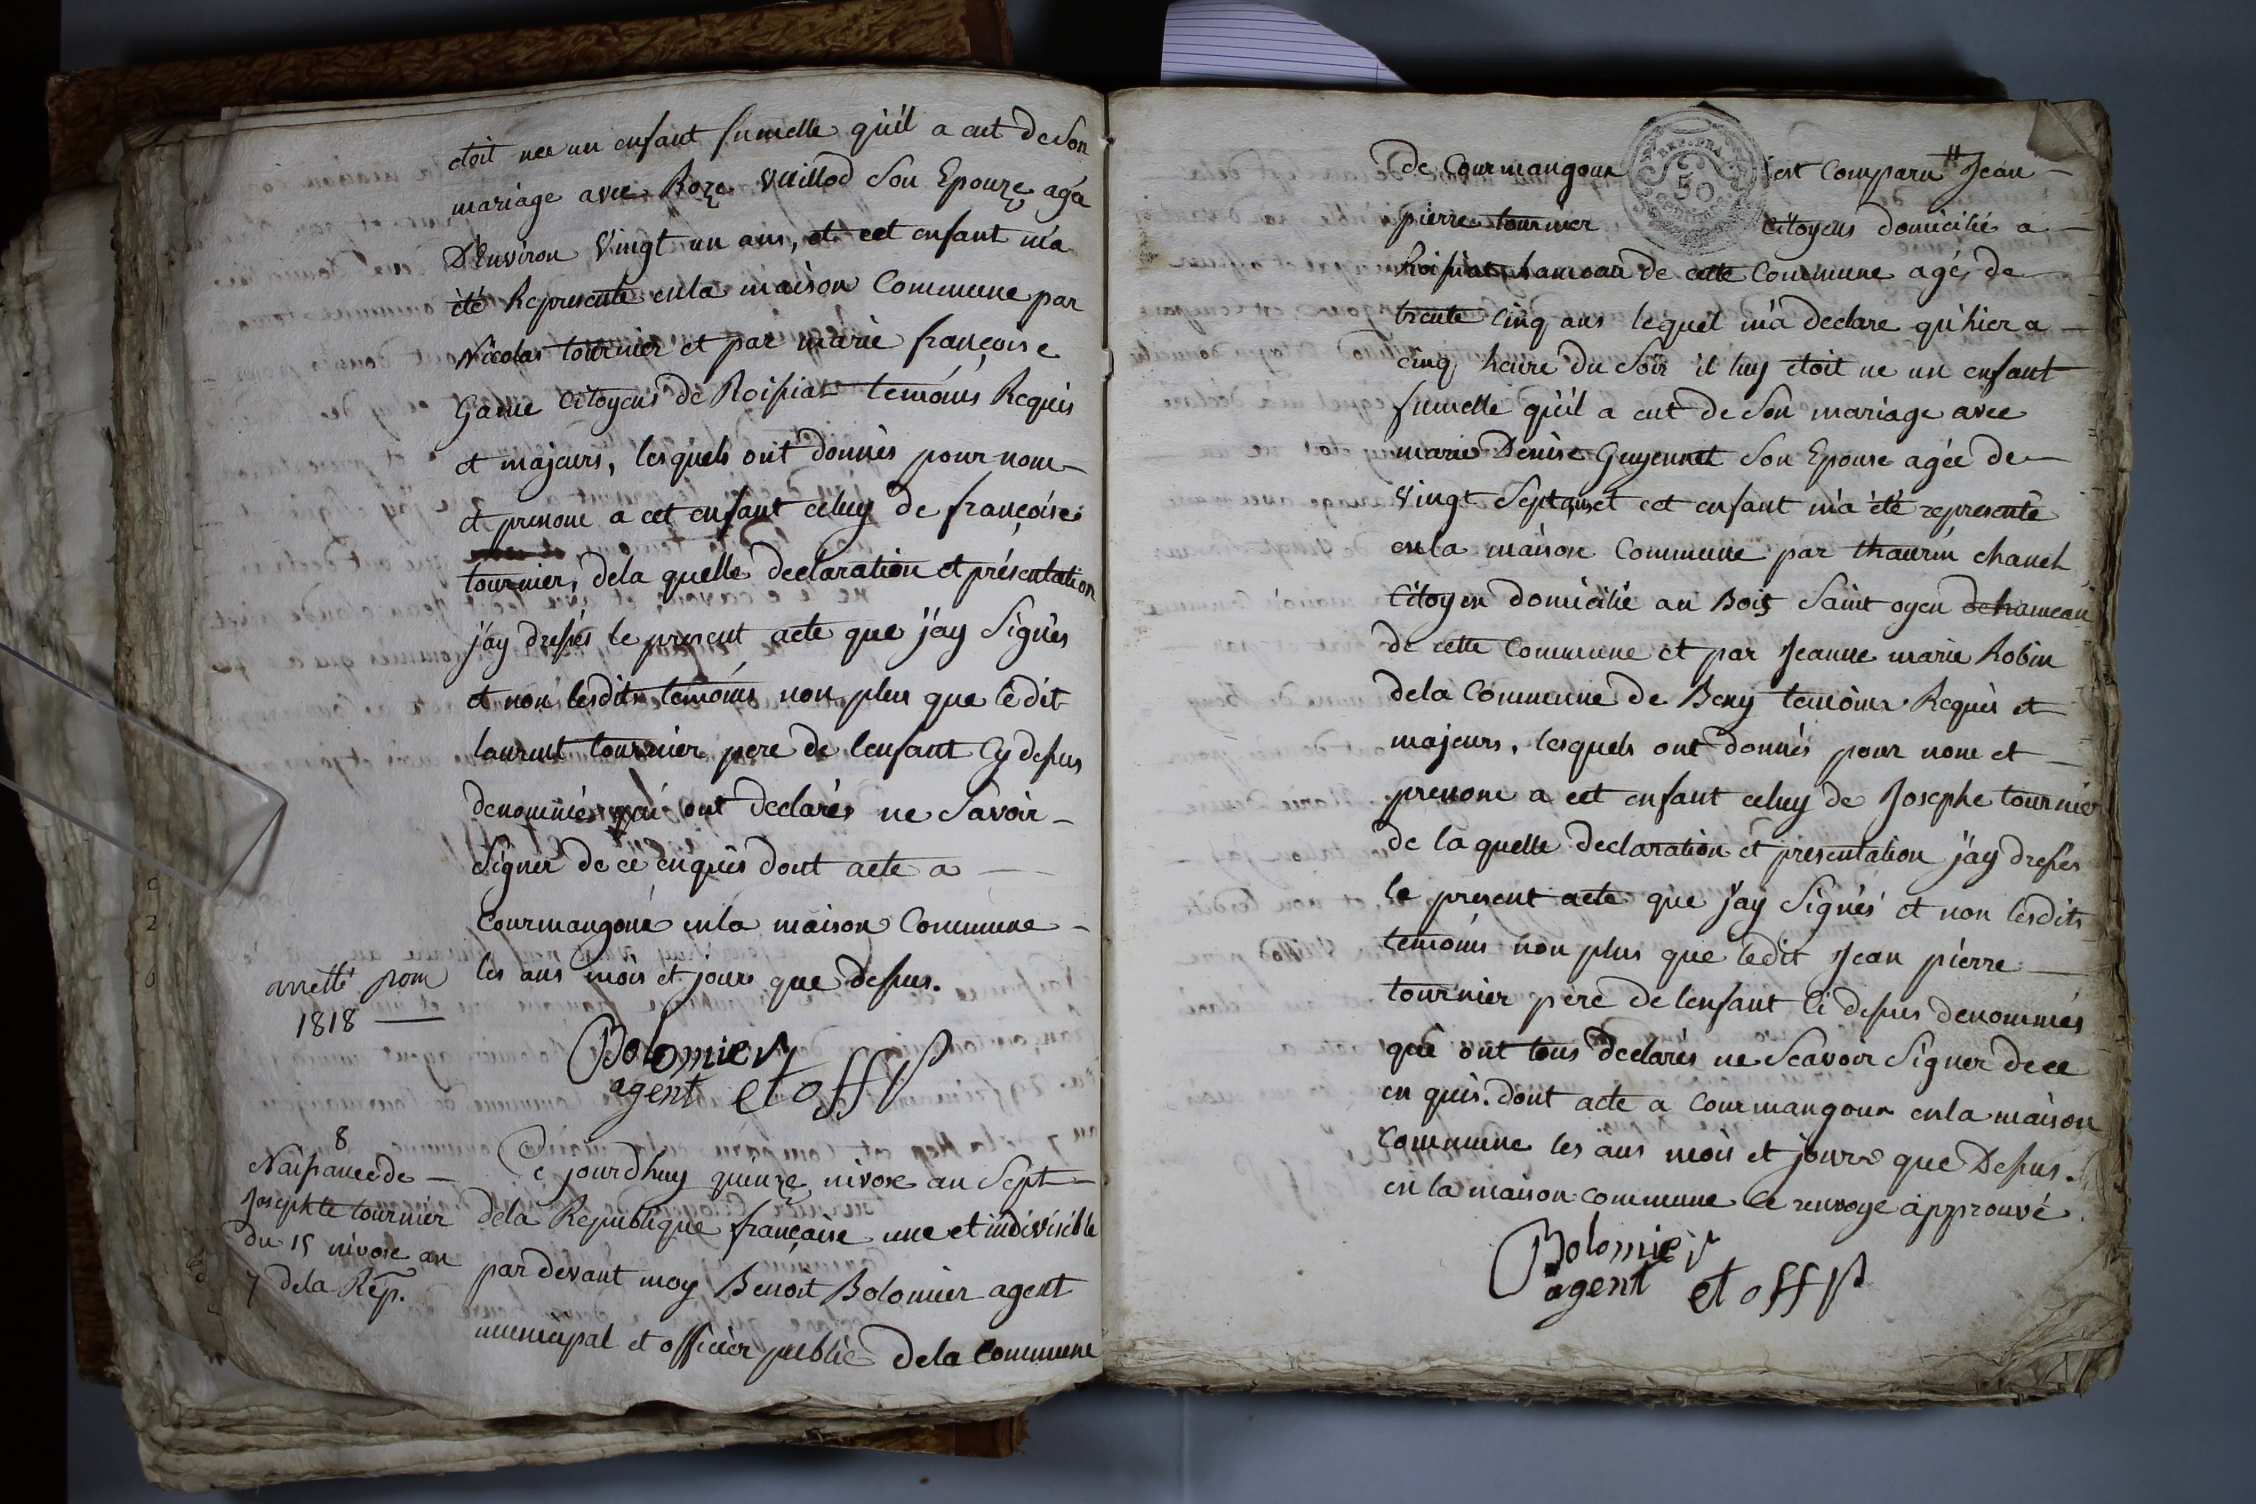 etoit nee un enfant fumelle qu'il a eut de Son
mariage avec Roze Vuillod Son Epouze agéa
D'Environ Vingt un ans, et cet enfant m'a
été Representé en la maison Commune par
Nicolas tournier et par marie françoise
Game Citoyens de Roissiat temoins Requis
et majeurs, lesquels ont donnés pour nom
et prenom a cet enfant celuy de françoise
tournier, de la quelle declaration et présentation
j'ay dressés le present acte que j'ay Signés
et non lesdits temoins non plus que le dit
laurent tournier pere de lenfant Cy dessus
denommés qui ont declarés ne Savoir
Signer de ce enquis dont acte a
Courmangoux en la maison Commune
les ans mois et jours que dessus.
arretté pour
1818
Bolomier
agent et off p
8
Naissance de
Josephte tournier
du 15 nivose an
7 de la Rép.
Ce jourdhuy quinze nivose an Sept
de la Republique française une et indivisible
par devant moy Benoit Bolomier agent
municipal et officier public de la Commune
de Courmangoux est Comparu # Jean
REP. FRA
50
CENTIMES
pierre tournier Citoyens domicilié a
Roissiat, hameau de cette Commune agé de
trente cinq ans lequel m'a declaré qu'hier a
cinq heure du Soir il luy etoit ne un enfant
fumelle qu'il a eut de Son mariage avec
marie Denise Guyennet Son Epouse agée de
Vingt Sept ans et cet enfant m'a été representé
en la maison Commune par thaurin chanel
Citoyen domicilié au Bois Saint oyen de hameau
de cette Commune et par Jeanne marie Robin
de la Commune de Beny temoins Requis et
majeurs, lesquels ont donnés pour nom et
prenom a cet enfant celuy de Josephe tournier
de la quelle declaration et presentation j'ay dressés
le present acte que j'ay Signés et non lesdits
temoins non plus que ledit Jean pierre
tournier pere de lenfant Ci dessus denommés
que ont tous declarés ne Scavoir Signer de ce
en quis. dont acte a Courmangoux en la maison
Commune les ans mois et jours que Dessus.
en la maison commune ce renvoye approuvé
Bolomier
agent et off p